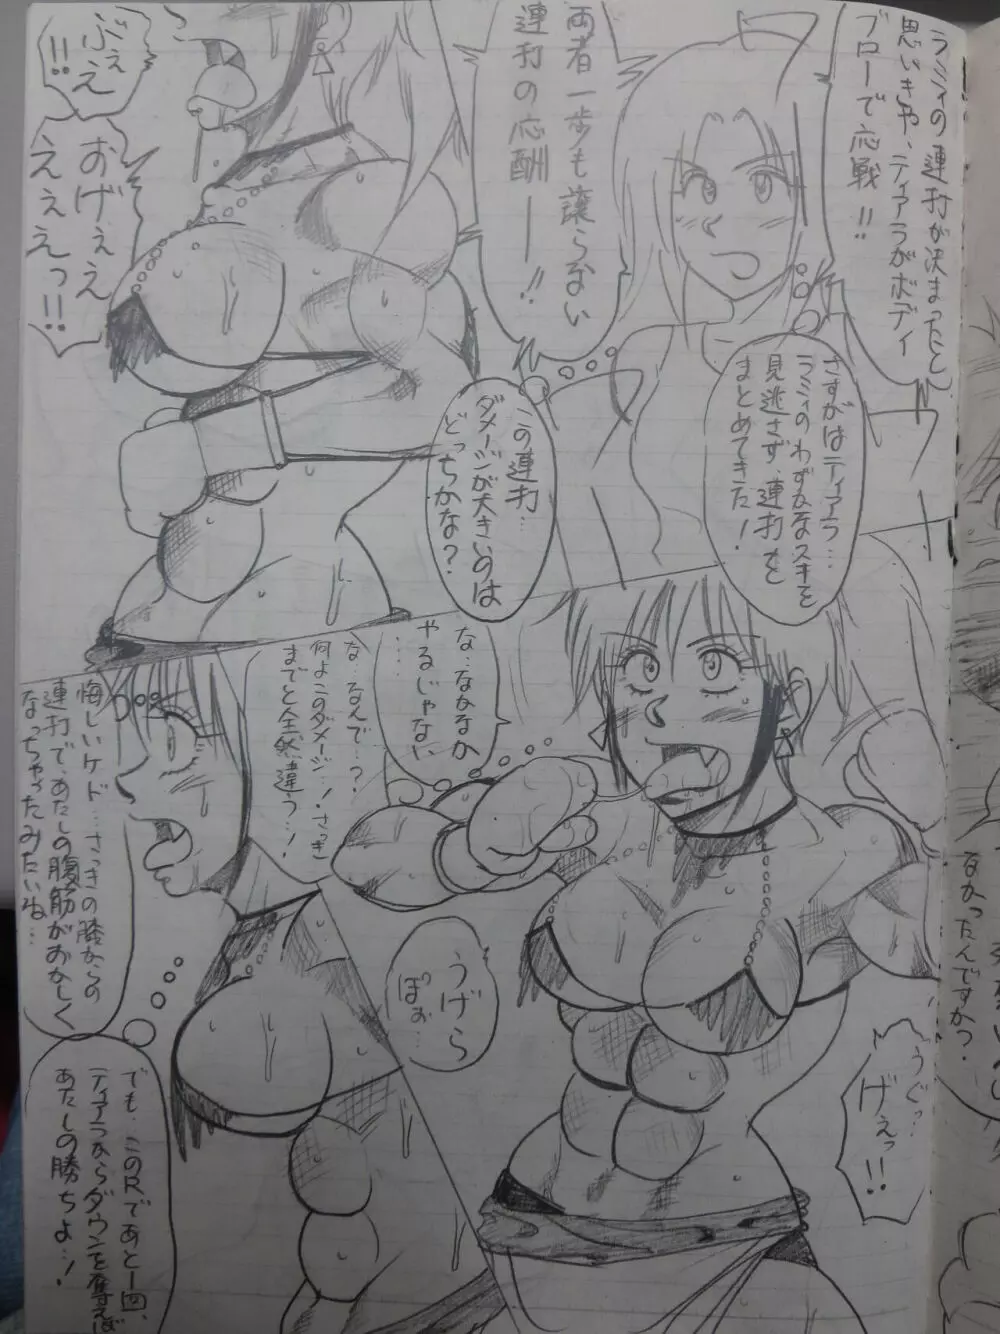 ラミィの連打が決まったと
思いきや、ティアラがボディ
ブローで応戦!!
両者一歩も譲らない
連打の応酬ーー!!
さすがはティアラ…
ラミィのわずかなスキを
見逃さず、連打を
まとめてきた!
この連打…
ダメージが大きいのは
どっちかな?
ぶぇえ
!!
おげぇえ
ええぇっ!!
な、なななか
やるじゃない
…
な、なんで…?
何よこのダメージ…!さっき
までと全然違う…!
うげら
ぽぉ…
うぐっ?
げえっ!!
悔しいケド…さっきの膝からの
連打で、あたしの腹筋がおかしく
なっちゃったみたいね…
でも…このRであと一回、
ティアラからダウンを奪えば
あたしの勝ちよ…!
なかったんですか?